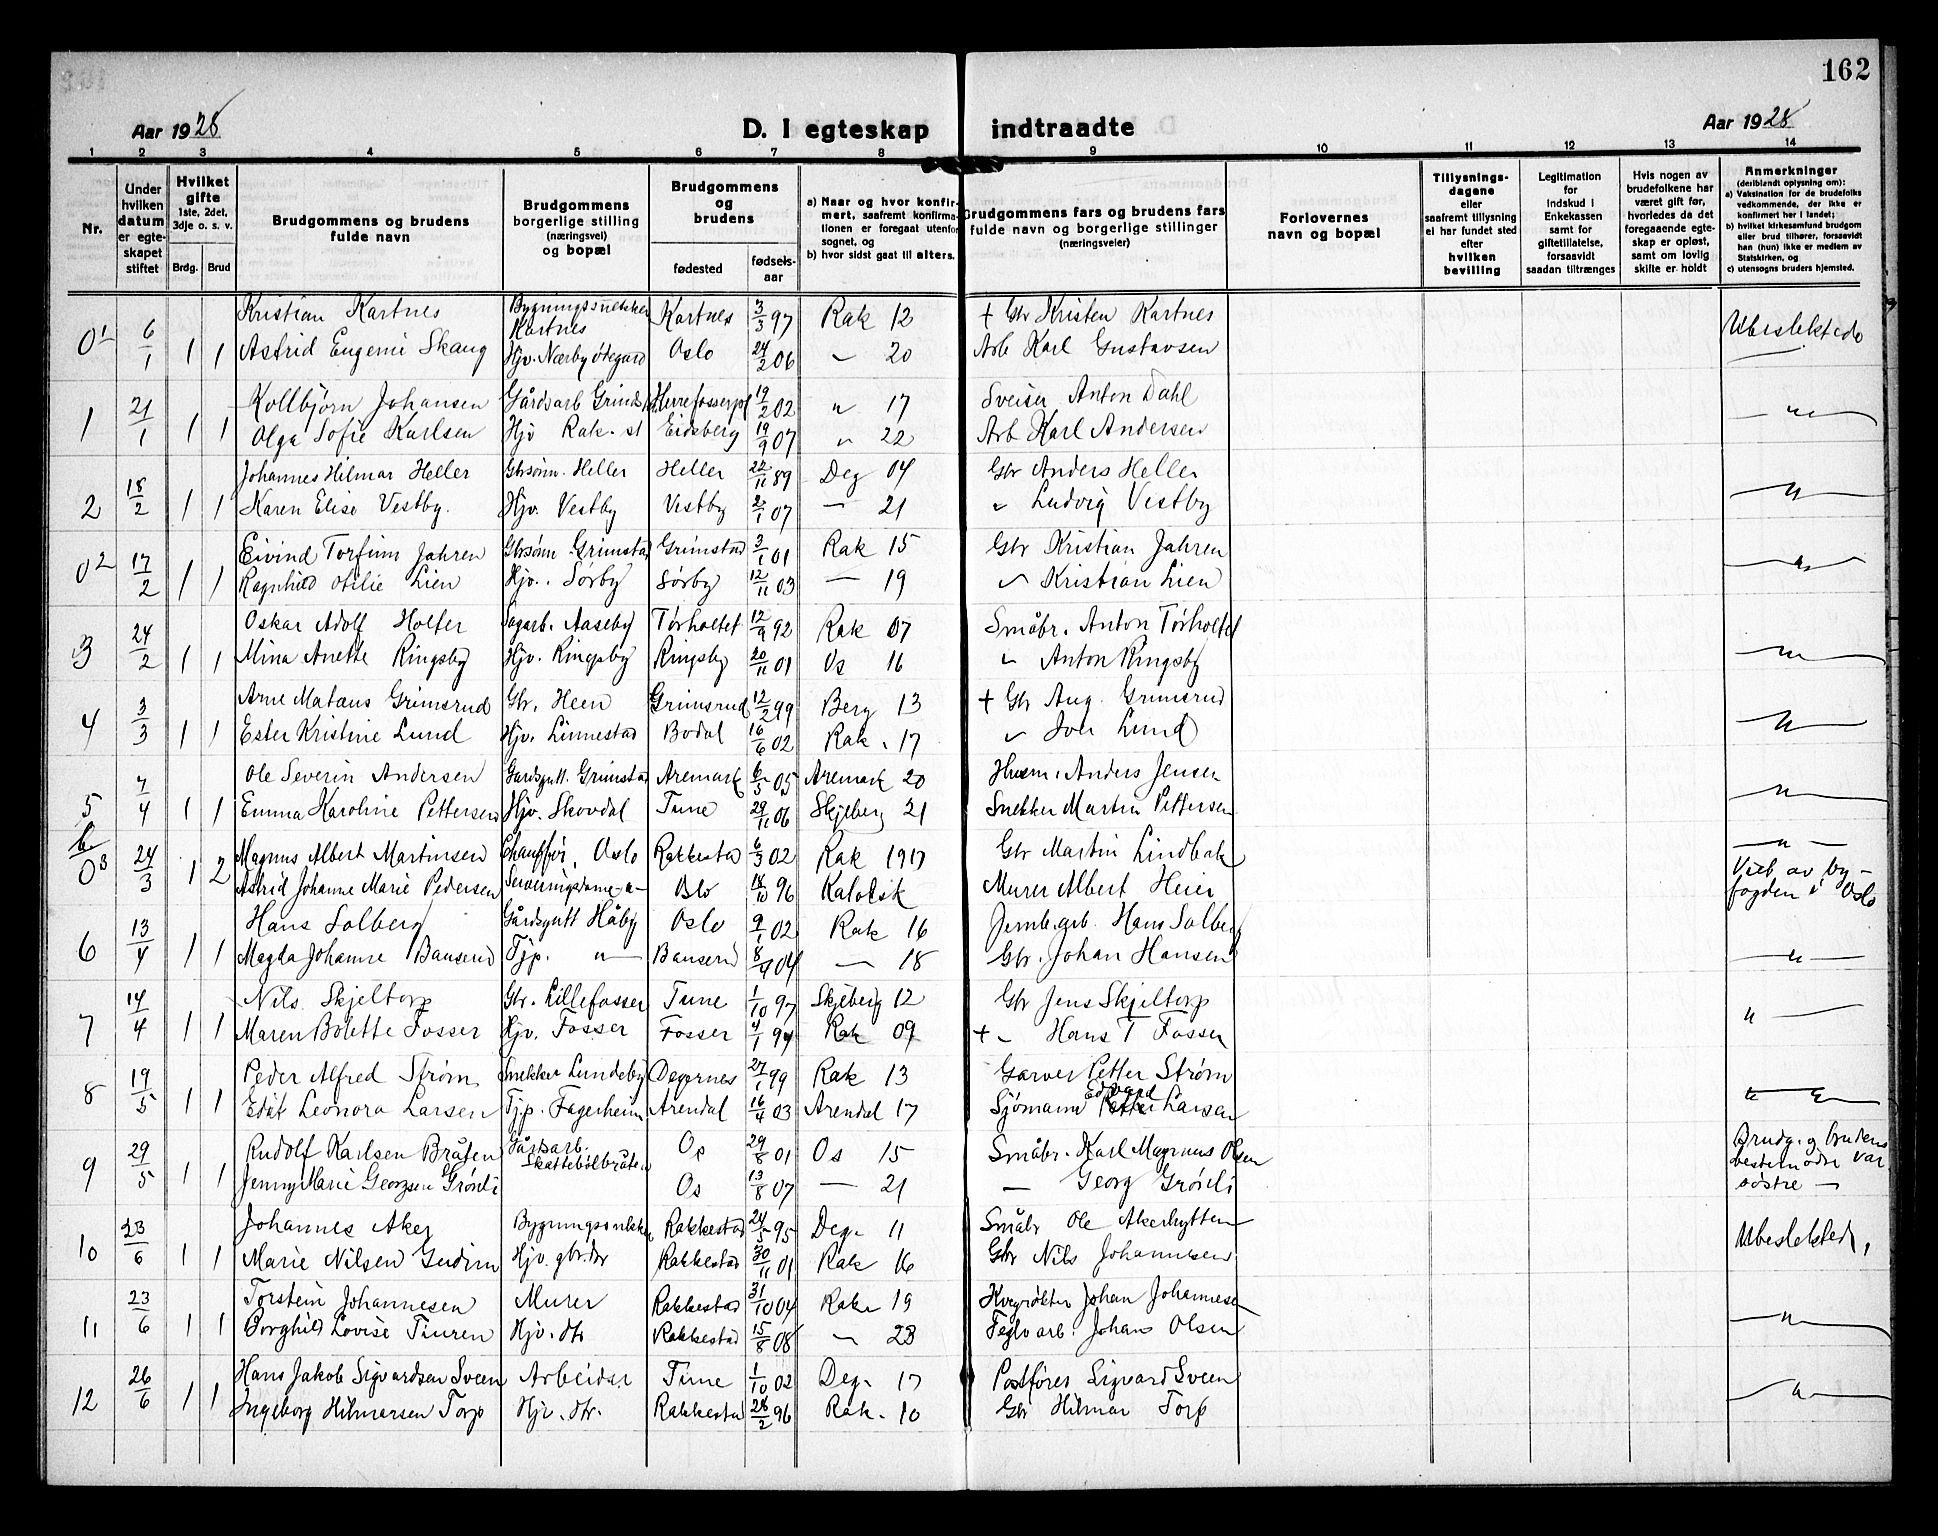 162
Aar 1928
D. I egteskap indtraadte
Aar 1928
1 2 3 4 5 6 7 8 9 10 11 12 13 14
Nr.
Under hvilken datum er egteskapet stiftet
Hvilket gifte 1ste, 2det, 3dje o. s. v.
Brdg. Brud
Brudgommens og brudens fulde navn
Brudgommens borgerlige stilling (næringsvei) og bopæl
Brudgommens og brudens
fødested
fødselsaar
a) Naar og hvor konfirmert, saafremt konfirmationen er foregaat utenfor sognet, og
b) hvor sidst gaat til alters.
Brudgommens fars og brudens fars fulde navn og borgerlige stillinger (næringsveier)
Forlovernes navn og bopæl
Tillysningsdagene eller saafremt tillysning ei har fundet sted efter hvilken bevilling
Legitimation for indskud i Enkekassen samt for giftetillatelse, forsaavidt saadan tiltrænges
Hvis nogen av brudefolkene har været gift før, hvorledes da det foregaaende egteskap er opløst, samt om lovlig skifte er holdt
Anmerkninger
(deriblandt oplysning om):
a) Vaksination for de brudefolks vedkommende, der ikke er konfirmert her i landet;
b) hvilket kirkesamfund brudgom eller brud tilhører, forsaavidt han (hun) ikke er medlem av Statskirken, og
c) utensogns bruders hjemsted.
01 6/1 Kristian Kartnes Bygningssnekker Kartnes Kartnes 3/3 97 Rak 12 + Gbr Kristen Kartnes Ubeslektede
1 1 Astrid Eugenie Skaug Hjv. Nærby Øtegard Oslo 24/2 06 " 20 Arb Karl Gustavsen
1 21/1 Kollbjørn Johansen Gårdsarb Grindst Herrefosserpl 19/2 02 " 17 Sveiser Anton Dahl — " —
1 1 Olga Sofie Karlsen Hjv Rak. st Eidsberg 19/9 07 " 22 Arb Karl Andersen
2 18/2 Johannes Hilmar Heller Gbrsønn. Heller Heller 22/11 89 Deg 04 Gbr Anders Heller — " —
1 1 Karen Elise Vestby. Hjv. Vestby Vestby 2/1 07 — 21 " Ludvig Vestby
02 17/2 Eivind Torfinn Jahren Gbrsønn Grimstad Grimstad 3/1 01 Rak 15 Gbr Kristian Jahren — " —
1 1 Ragnhild Otilie Lien Hjv. Sørby Sørby 12/11 03 — 19 " Kristian Lien
3 24/2 Oskar Adolf Holter Sagarb. Aaseby Tørholtet 12/9 92 Rak 07 Småbr. Anton Tørholtet — " —
1 1 Mina Anette Ringsby Hjv. Ringsby Ringsby 20/11 01 Os 16 " Anton Ringsby
4 3/3 Arne Mataus Grimsrud Gbr. Heen Grimsrud 12/2 99 Berg 13 + Gbr Aug. Grimsrud — " —
1 1 Ester Kristine Lund Hjv. Linnestad Bodal 16/6 02 Rak. 17 " Joh Lund
5 7/4 Ole Severin Andersen Gardsgutt. Grimstad Aremark 6/5 05 Aremark 20 Husm. Anders Jensen — " —
1 1 Emma Karoline Pettersen Hjv. Skovdal Tune 29/11 06 Skjeberg 21 Snekker Martin Pettersen
03 24/3 Magnus Albert Martinsen Chauffør, Oslo Rakkestad 6/3 02 Rak 1917 Gbr Martin Lindbak — " —
1 2 Astrid Johanne Marie Pedersen Serveringsdame — " — Oslo 18/10 96 Katolsk Murer Albert Heier Viet av byfogden i Oslo
6 13/4 Hans Solberg Gårdsgutt Håby Oslo 9/1 02 Rak 16 Jernb.arb. Hans Solberg — " —
1 1 Magda Johanne Bauserud Tjp. — " — Bauserud 8/9 04 — 18 Gbr. Johan Hansen
7 14/4 Nils Skjeltorp Gbr. Lillefosser Tune 1/10 97 Skjeberg 12 Gbr Jens Skjeltorp " —
1 1 Maren Bolette Fosser Hjv. Fosser Fosser 4/1 94 Rak 09 + " Hans T Fosser
8 19/5 Peder Alfred Strøm Snekker Lundeby Degernes 27/1 99 Rak 13 Garver Petter Strøm — " —
1 1 Edit Leonora Larsen Tjp. Fagerheim Arendal 16/4 03 Arendal 17 Sjømann Edvard Larsen
9 29/5 Rudolf Karlsen Bråten Gårdsarb. Skattebølbråten Os 29/8 01 Os 15 Småbr. Karl Magnus Olsen Brudg. og brudens bestemødre var søstre —
1 1 Jenny Marie Georgsen Grønli Os 13/8 07 — 21 — Georg Grønli
10 23/6 Johannes Aker Bygningssnekker Rakkestad 24/5 95 Deg. 11 Småbr Ole Akerhytten Ubeslektede,
1 1 Marie Nilsen Gudim Hjv. gbr.dtr Rakkestad 30/11 01 Rak 16 Gbr Nils Johannesen
11 23/6 Torstein Johannesen Murer Rakkestad 31/10 04 Rak 19 Kvegrøkter Johan Johannesen — " —
1 1 Borghild Lovise Tiuren Hjv. dtr Rakkestad 15/8 08 " 23 Teglv.arb. Johans Olsen
12 26/6 Hans Jakob Sigvardsen Sveen Arbeider Tune 1/10 02 Deg. 17 Postfører Sigvard Sveen — " —
1 1 Ingeborg Hilmarsen Torp Hjv. dtr. Rakkestad 28/2 96 Rak. 10 Gbr Hilmar Torp